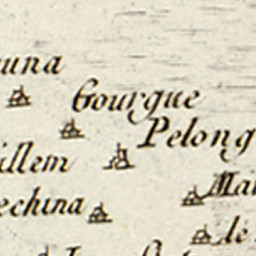 una
Gourgue
Pelong
illem
Mai
echina
de